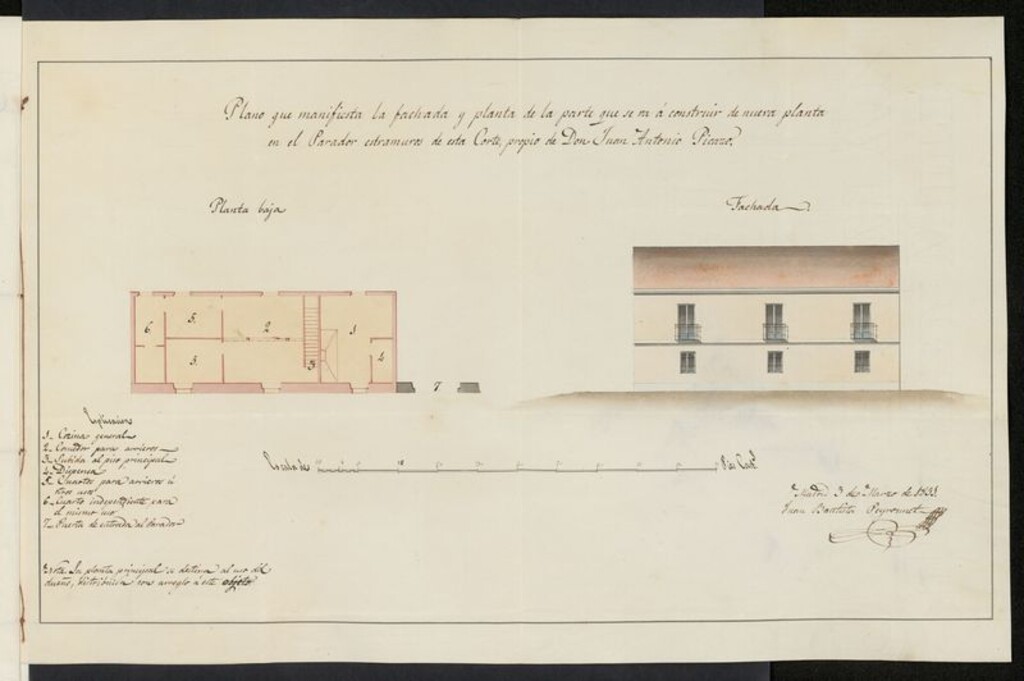 Plano que manifiesta la fachada y planta de la parte que se va á construir de nueva planta
en el Parador estramuros de esta Corte, propio de Don Juan Antonio Picazo.
Planta baja
Fachada
6.
5.
2
1
5.
3
4
7
Esplicacion
1. Cocina general
2. Comedor para arrieros
3. Subida al piso principal
4. Dispensa
5. Cuartos para arrieros ú
otros usos
6. Cuarto independiente para
el mismo uso
7. Puerta de entrada al Parador
Escala de
Pies Cast.
Madrid 3 de Marzo de
Juan Bautista Peyronnet
Nota. La planta principal se destina al uso del
dueño, distribuida con arreglo á este objeto